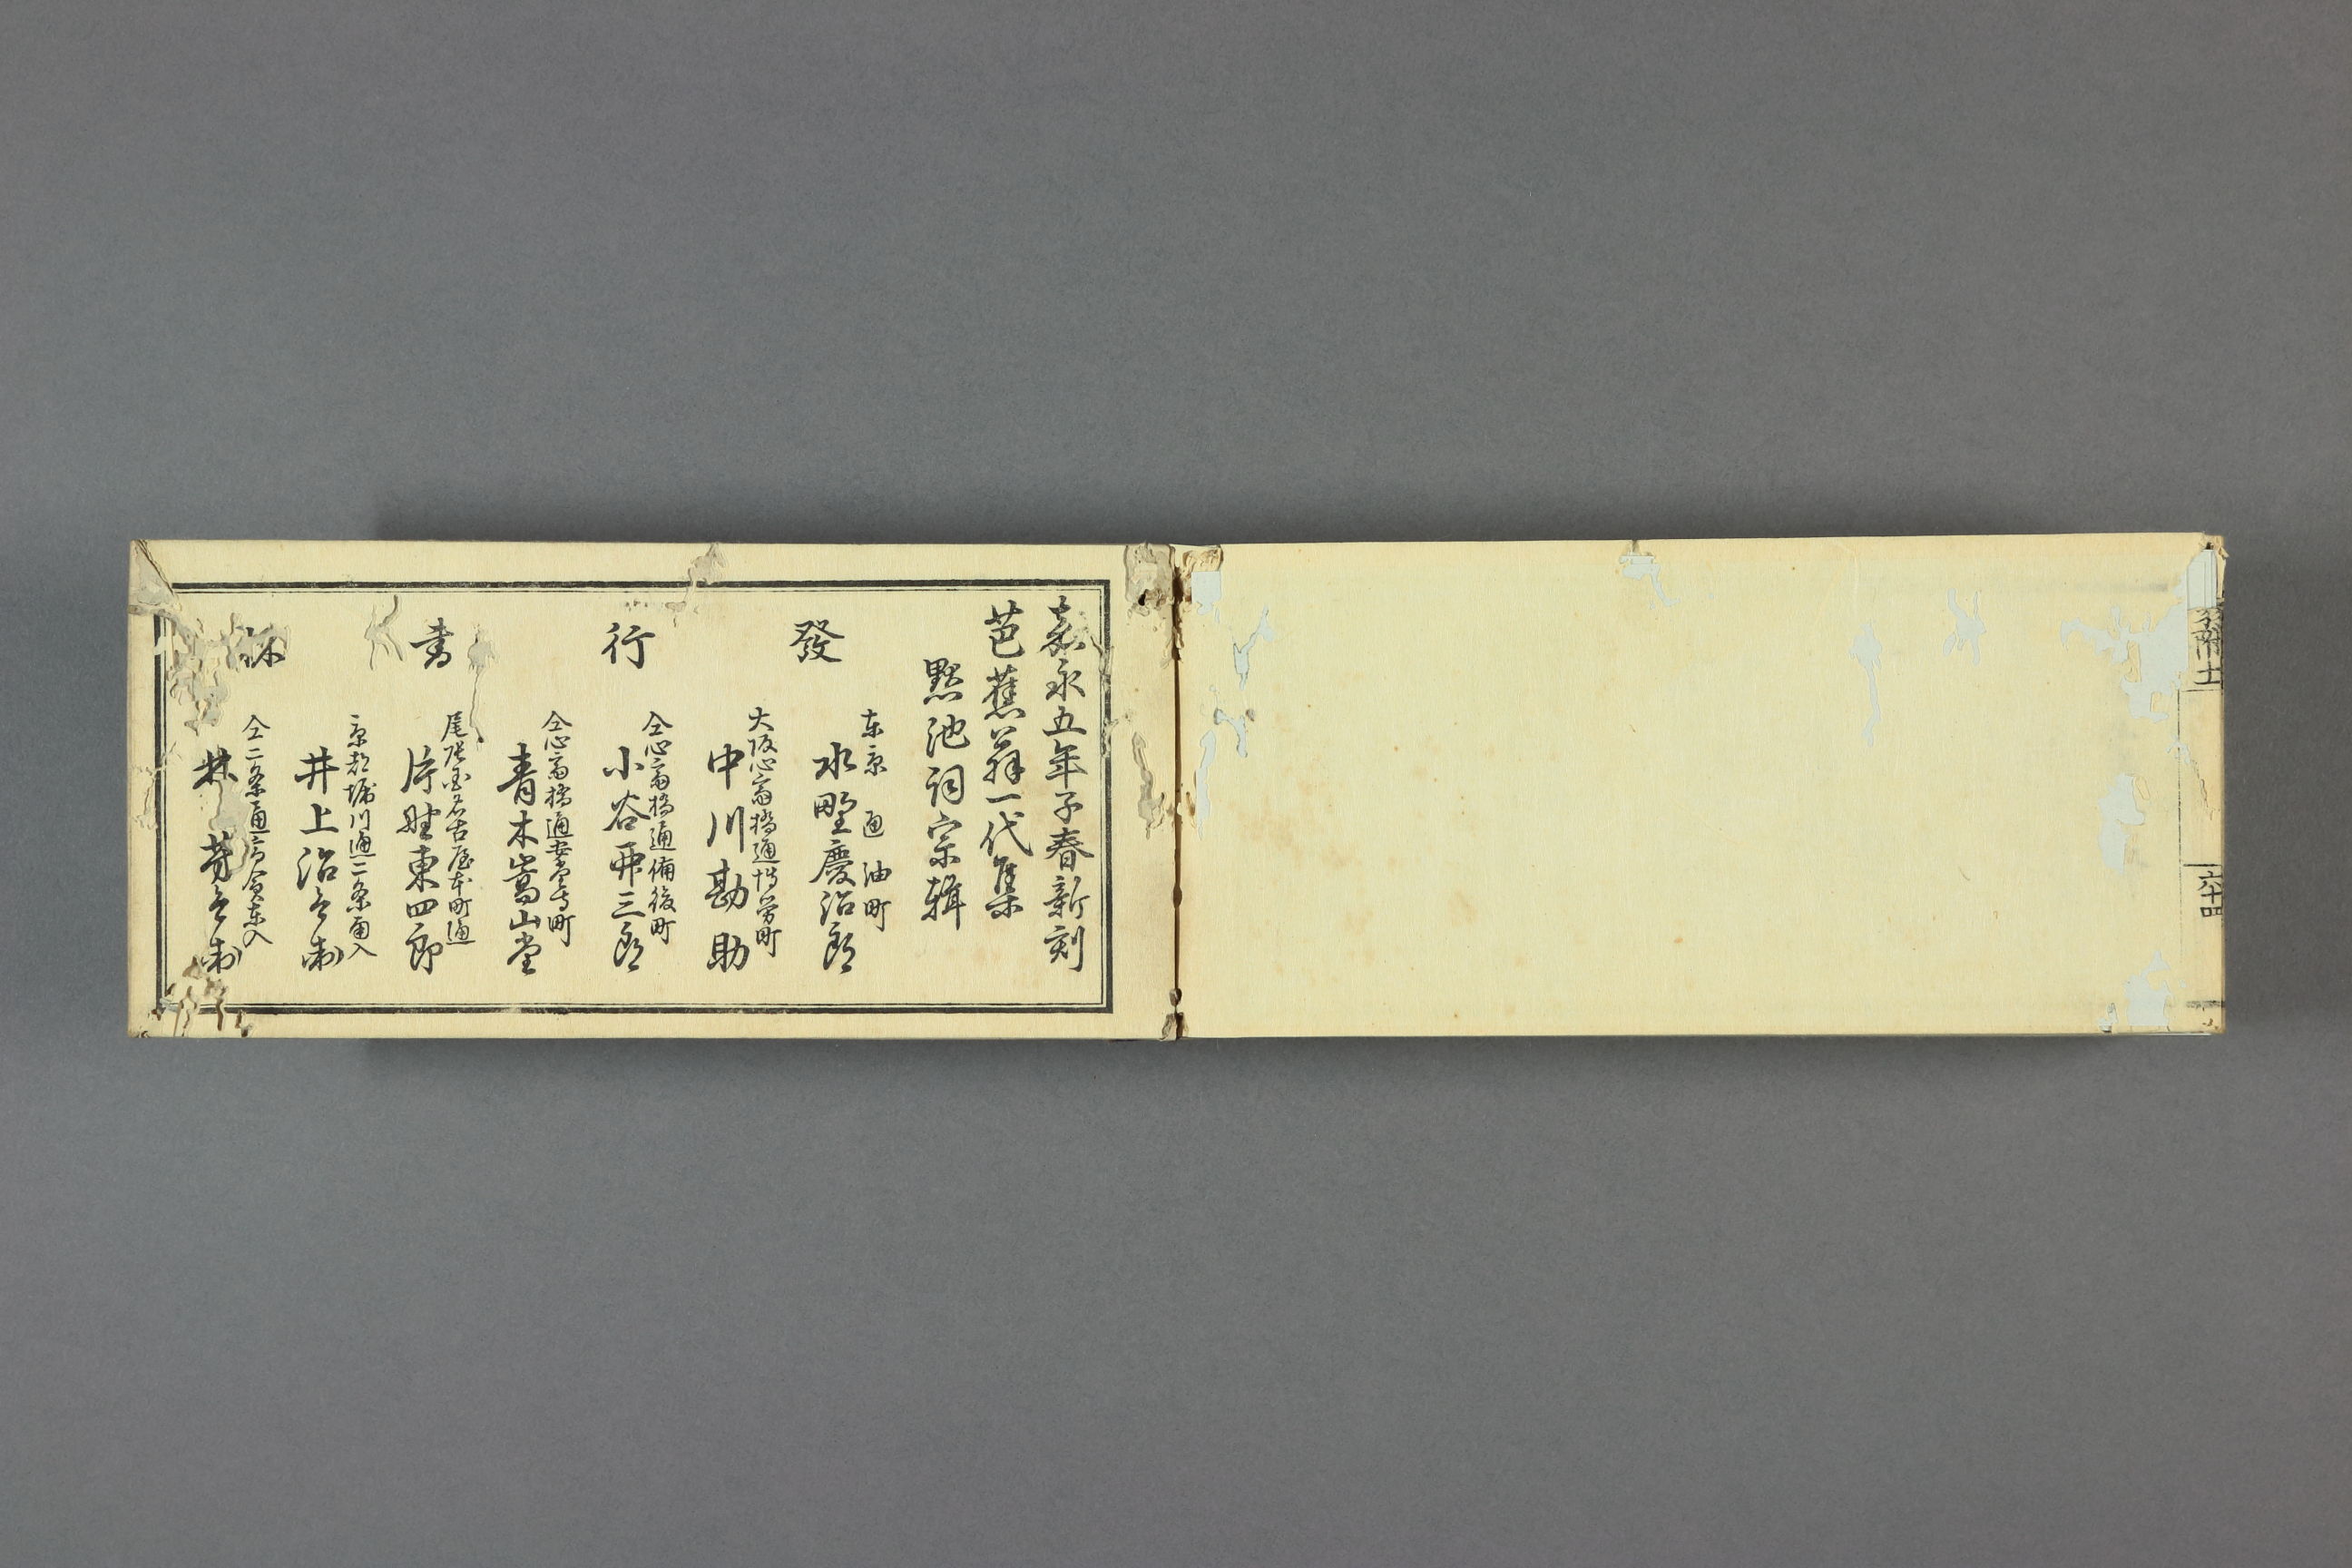 嘉永五年子春新刻
芭蕉翁一代集
黙池詞宗輯
發行書林
东京通油町
水野慶治郎
大阪心斎橋通博労町
中川勘助
仝心斎橋通備後町
小谷卯三郎
仝心斎橋通安堂寺町
青木嵩山堂
尾張国名古屋本町通
片野東四郎
京都堀川通二条南入
井上治兵衛
仝二条通高倉东入
林芳兵衛
六十四